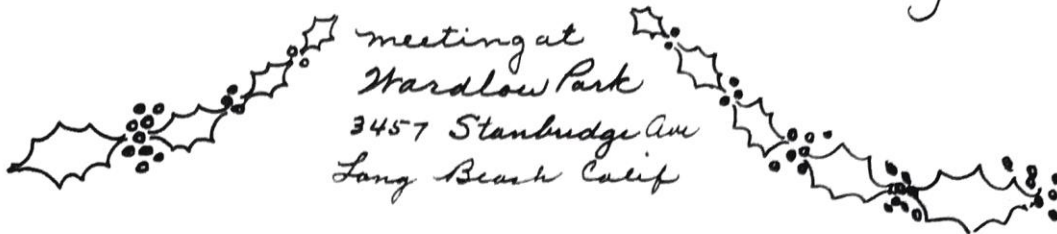 meeting at
Wardlow Park
3457 Stanbridge Ave
Long Beach Calif